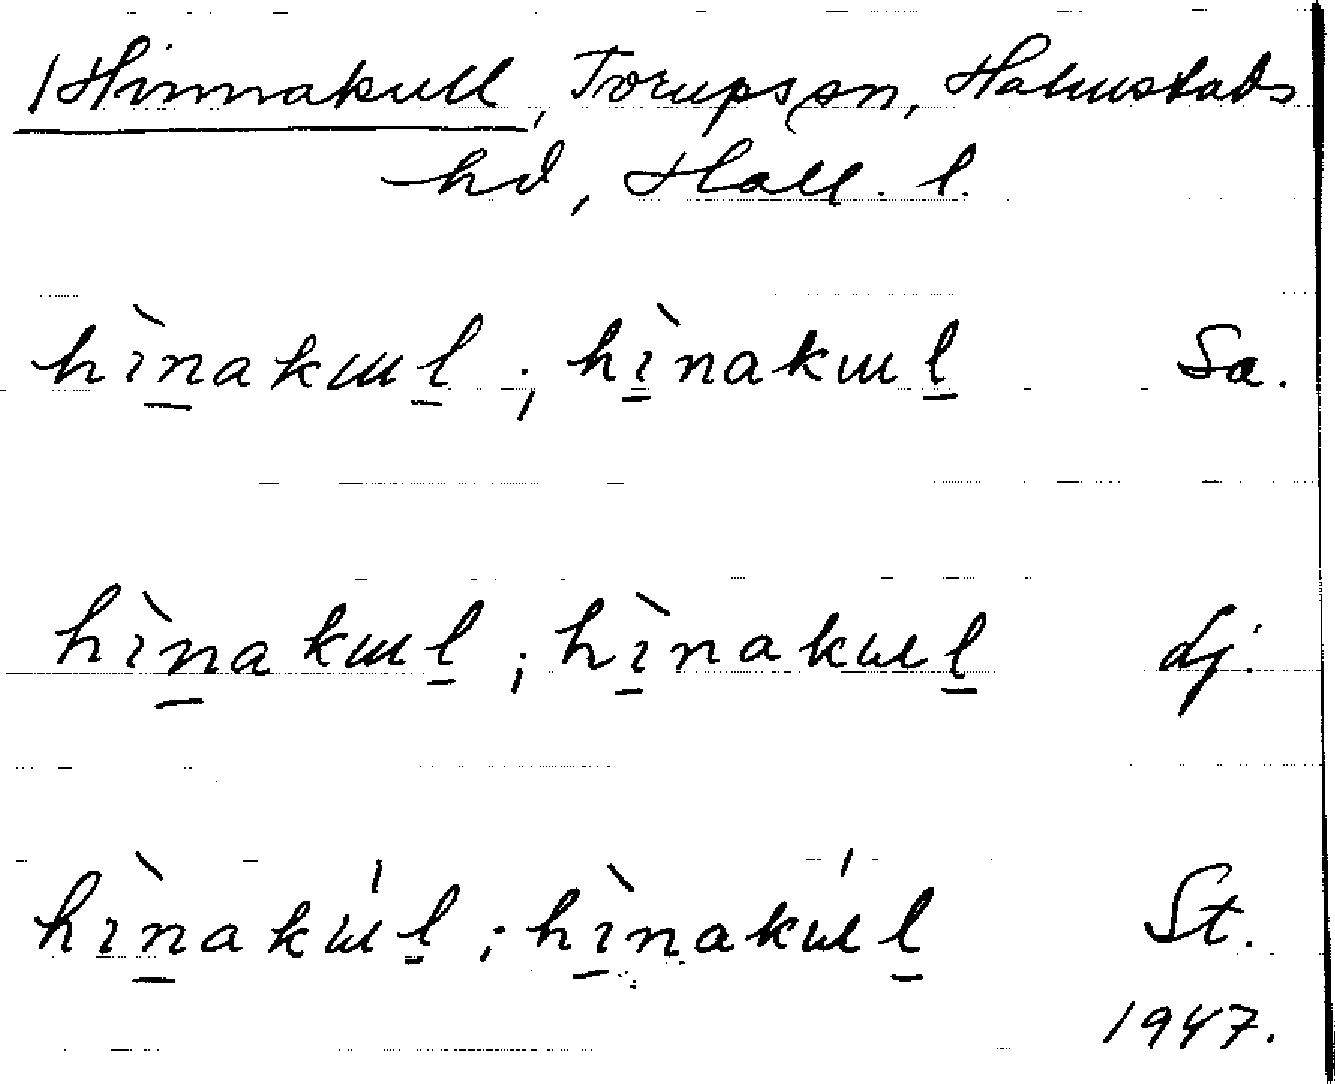 /Hinnakull, Torups sn, Halmstads
hd, Hall. l.
hìn̲akɯl̲ ; hì̲nakɯl̲ Sa.
hìn̲akɯl̲ ; hì̲nakɯl̲ Lj.
hìn̲akɯ́l̲ ; hì̲nakɯ́l̲ St.
1947.